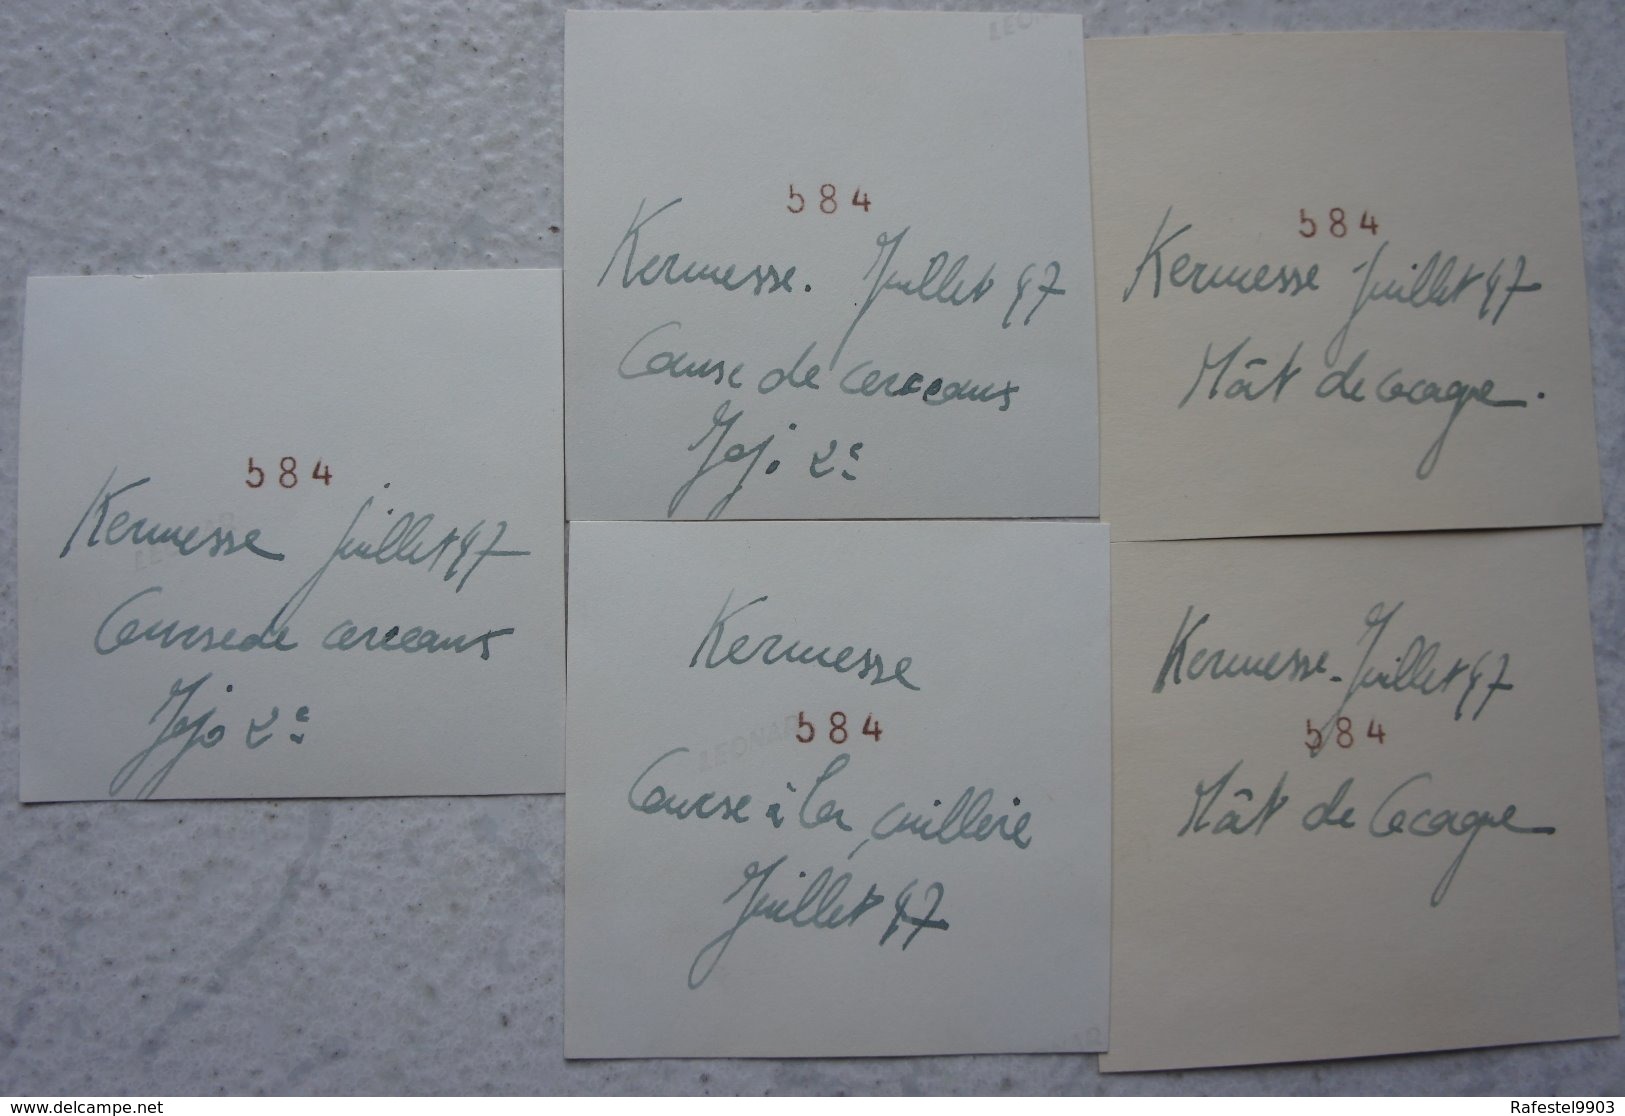 584
Kermesse juillet 47
Course de cerceaux
Jojo 2e
LEONAR
584
Kermesse. Juillet 47
Course de cerceaux
Jojo 2e
584
Kermesse Juillet 47
Mât de cocagne.
Kermesse
584
LEONAR
Course à la cuillère
Juillet 47
Kermesse - Juillet 47
584
Mât de Cocagne
www.delcampe.net
Rafestel9903